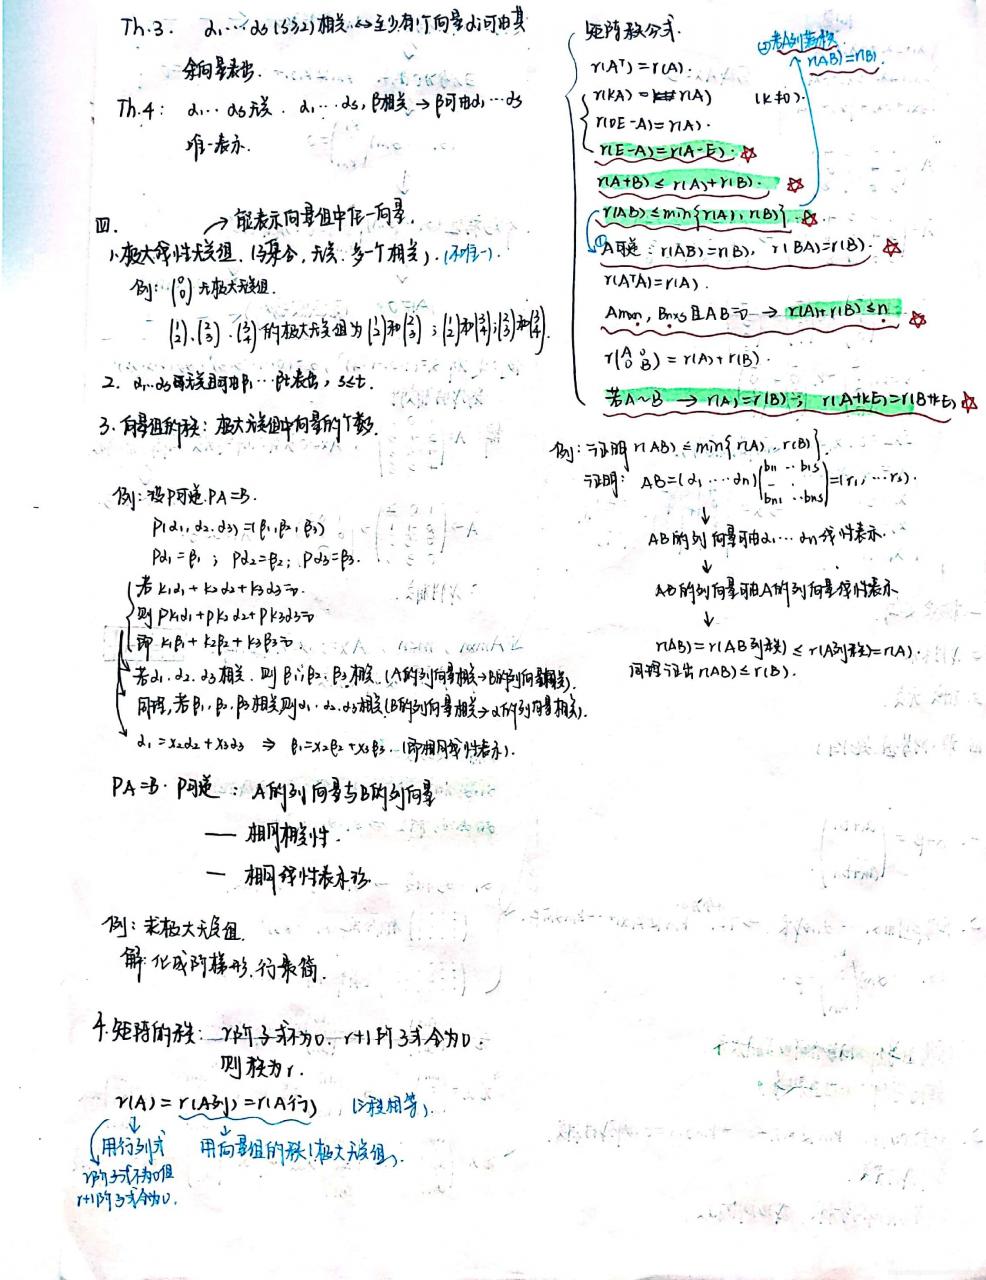 Th.3. α₁…αs (s≥2) 相关 ⇔ 至少有1个向量αi可由其
余向量表出.
Th.4: α₁…αs无关. α₁…αs, β相关 → β可由α₁…αs
唯一表示.
四.
→ 能表示向量组中任一向量.
1. 极大线性无关组. (与集合, 无关. 多一个相关). (不唯一).
例: (0 0) 无极大无关组.
(1 2)、(2 3)、(3 4) 的极大无关组为 (1 2) 和 (2 3); (1 2) 和 (3 4); (2 3) 和 (3 4).
2. α₁…αs无关且可由β₁…βt表出, s≤t.
3. 向量组的秩: 极大无关组中向量的个数.
例: 设P可逆. PA=B.
P(α₁, α₂, α₃)=(β₁, β₂, β₃)
Pα₁=β₁; Pα₂=β₂; Pα₃=β₃.
若 k₁α₁+k₂α₂+k₃α₃=0.
则 Pk₁α₁+Pk₂α₂+Pk₃α₃=0
即 k₁β₁+k₂β₂+k₃β₃=0
若α₁. α₂. α₃相关. 则β₁; β₂. β₃相关. (A的列向量相关→B的列向量相关).
同理, 若β₁. β₂. β₃相关, 则α₁. α₂. α₃相关 (B的列向量相关→α的列向量相关).
α₁=x₂α₂+x₃α₃ ⇒ β₁=x₂β₂+x₃β₃. (即相同线性表示).
PA=B. P可逆: A的列向量与B的列向量
— 相同相关性.
— 相同线性表示.
例: 求极大无关组.
解: 化成阶梯形. 行最简.
4. 矩阵的秩: r阶子式不为0. r+1阶子式全为0.
则秩为r.
r(A)=r(A列)=r(A行) (三秩相等).
用行列式 用向量组的秩(极大无关组).
r阶子式不为0但
r+1阶子式全为0.
矩阵秩公式.
②若A列满秩
r(AB)=r(B).
r(Aᵀ)=r(A).
r(kA)=r(A) (k≠0).
r(0E-A)=r(A).
r(E-A)=r(A-E). ☆
r(A+B)≤r(A)+r(B). ☆
r(AB)≤min{r(A), r(B)}. ☆
① A可逆: r(AB)=r(B), r(BA)=r(B). ☆
r(AᵀA)=r(A).
Am×n, Bn×s且AB=0 → r(A)+r(B)≤n. ☆
r(A 0 0 B)=r(A)+r(B).
若A~B → r(A)=r(B); r(A+kE)=r(B+kE) ☆
例: 证明 r(AB)≤min{r(A), r(B)}.
证明: AB=(α₁…αn)(b11 … b1s … bn1 … bns)=(r₁,…rs).
↓
AB的列向量可由α₁…αn线性表示.
↓
AB的列向量可由A的列向量线性表示
↓
r(AB)=r(AB列秩)≤r(A列秩)=r(A).
同理证出 r(AB)≤r(B).